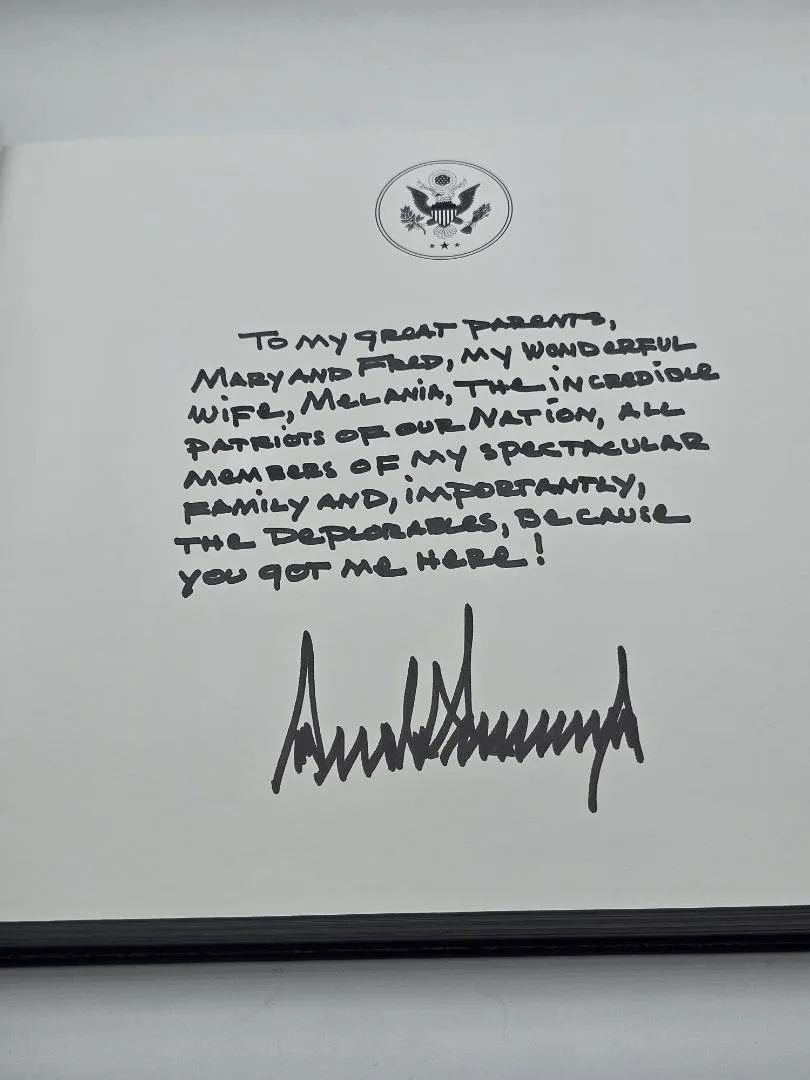 To my great parents,
Mary and Fred, my wonderful
wife, Melania, the incredible
patriots of our Nation, all
members of my spectacular
family and, importantly,
the Deplorables, because
you got me here!